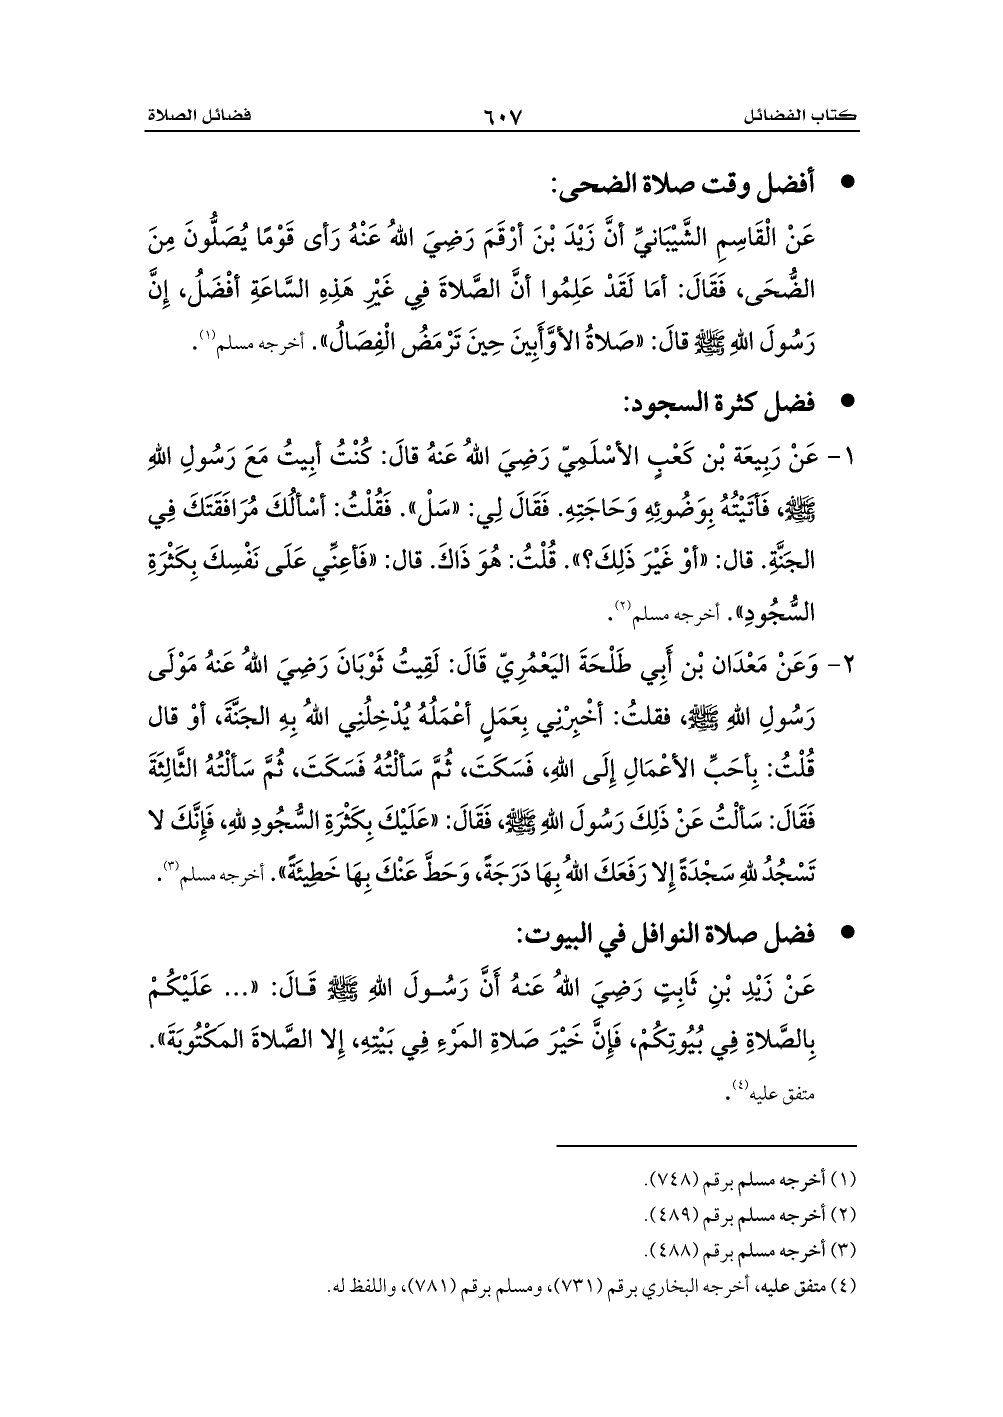 كتاب الفضائل ٦٠٧ فضائل الصلاة
● أفضل وقت صلاة الضحى:
عَنْ الْقَاسِمِ الشَّيْبَانيِّ أنَّ زَيْدَ بْنَ أرْقَمَ رَضِيَ اللهُ عَنْهُ رَأى قَوْمًا يُصَلُّونَ مِنَ
الضُّحَى، فَقَالَ: أمَا لَقَدْ عَلِمُوا أنَّ الصَّلاةَ فِي غَيْرِ هَذِهِ السَّاعَةِ أفْضَلُ، إنَّ
رَسُولَ اللهِ ﷺ قالَ: «صَلاةُ الأوَّابِينَ حِينَ تَرْمَضُ الْفِصَالُ». أخرجه مسلم(١).
● فضل كثرة السجود:
١- عَنْ رَبِيعَة بْن كَعْبٍ الأسْلَمِيّ رَضِيَ اللهُ عَنهُ قالَ: كُنْتُ أبِيتُ مَعَ رَسُولِ اللهِ
ﷺ، فَأتَيْتُهُ بِوَضُوئِهِ وَحَاجَتِهِ. فَقَالَ لِي: «سَلْ». فَقُلْتُ: أسْألُكَ مُرَافَقَتَكَ فِي
الجَنَّةِ. قال: «أوْ غَيْرَ ذَلِكَ؟». قُلْتُ: هُوَ ذَاكَ. قال: «فَأعِنِّي عَلَى نَفْسِكَ بِكَثْرَةِ
السُّجُودِ». أخرجه مسلم(٢).
٢- وَعَنْ مَعْدَان بْن أَبِي طَلْحَةَ اليَعْمُرِيّ قَالَ: لَقِيتُ ثَوْبَانَ رَضِيَ اللهُ عَنهُ مَوْلَى
رَسُولِ اللهِ ﷺ، فقلتُ: أخْبِرْنِي بِعَمَلٍ أعْمَلُهُ يُدْخِلُنِي اللهُ بِهِ الجَنَّةَ، أوْ قال
قُلْتُ: بِأحَبِّ الأعْمَالِ إلَى اللهِ، فَسَكَتَ، ثُمَّ سَألْتُهُ فَسَكَتَ، ثُمَّ سَألْتُهُ الثَّالِثَةَ
فَقَالَ: سَألْتُ عَنْ ذَلِكَ رَسُولَ اللهِ ﷺ، فَقَالَ: «عَلَيْكَ بِكَثْرَةِ السُّجُودِ للهِ، فَإنَّكَ لا
تَسْجُدُ للهِ سَجْدَةً إلا رَفَعَكَ اللهُ بِهَا دَرَجَةً، وَحَطَّ عَنْكَ بِهَا خَطِيئَةً». أخرجه مسلم(٣).
● فضل صلاة النوافل في البيوت:
عَنْ زَيْدِ بْنِ ثَابِتٍ رَضِيَ اللهُ عَنهُ أَنَّ رَسُـولَ اللهِ ﷺ قَـالَ: «... عَلَيْكُـمْ
بِالصَّلاةِ فِي بُيُوتِكُمْ، فَإنَّ خَيْرَ صَلاةِ المَرْءِ فِي بَيْتِهِ، إلا الصَّلاةَ المَكْتُوبَةَ».
متفق عليه(٤).
(١) أخرجه مسلم برقم (٧٤٨).
(٢) أخرجه مسلم برقم (٤٨٩).
(٣) أخرجه مسلم برقم (٤٨٨).
(٤) متفق عليه، أخرجه البخاري برقم (٧٣١)، ومسلم برقم (٧٨١)، واللفظ له.